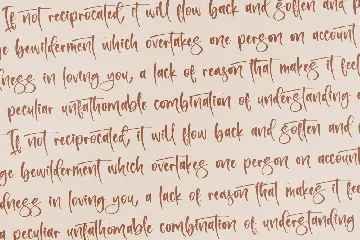 If not reciprocated, it will flow back and soften and
ge bewilderment which overtakes one person on account
dness in loving you, a lack of reason that makes it fee
peculiar unfathomable combination of understanding
If not reciprocated, it will flow back and soften and
ge bewilderment which overtakes one person on account
dness in loving you, a lack of reason that makes it fee
a peculiar unfathomable combination of understanding